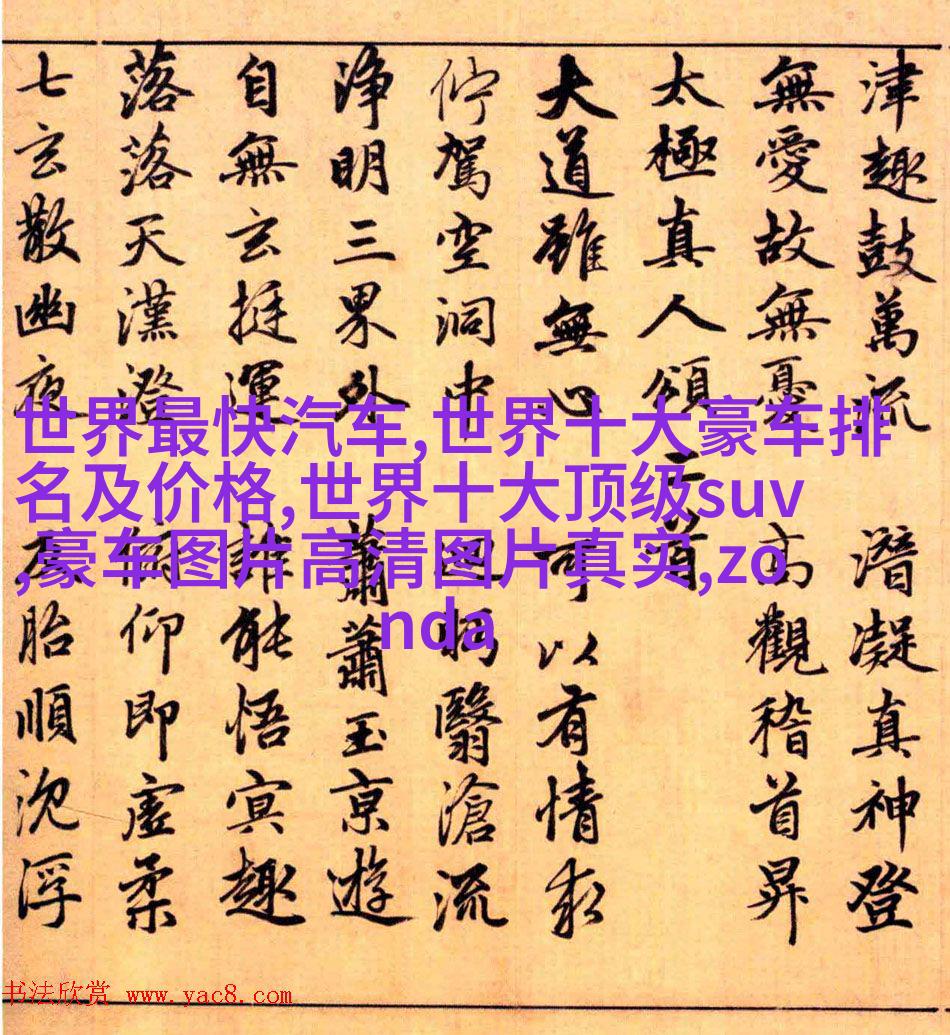 津趣鼓萬流 潛凝真神登
無愛故無憂 高觀稽首昇
太極真人頌二首
大道雖無心 可以有情求
佇駕空洞中 回翳滄流
淨明三界外 蕭蕭玉京遊
自無玄挺運 誰能悟冥趣
落落天漢澄 仰即虛柔
七玄散幽夜 胎順沉浮
世界最快汽车,世界十大豪车排
名及价格,世界十大顶级suv
,豪车图片高清图片真实,zo
nda
书法欣赏 www.yac8.com